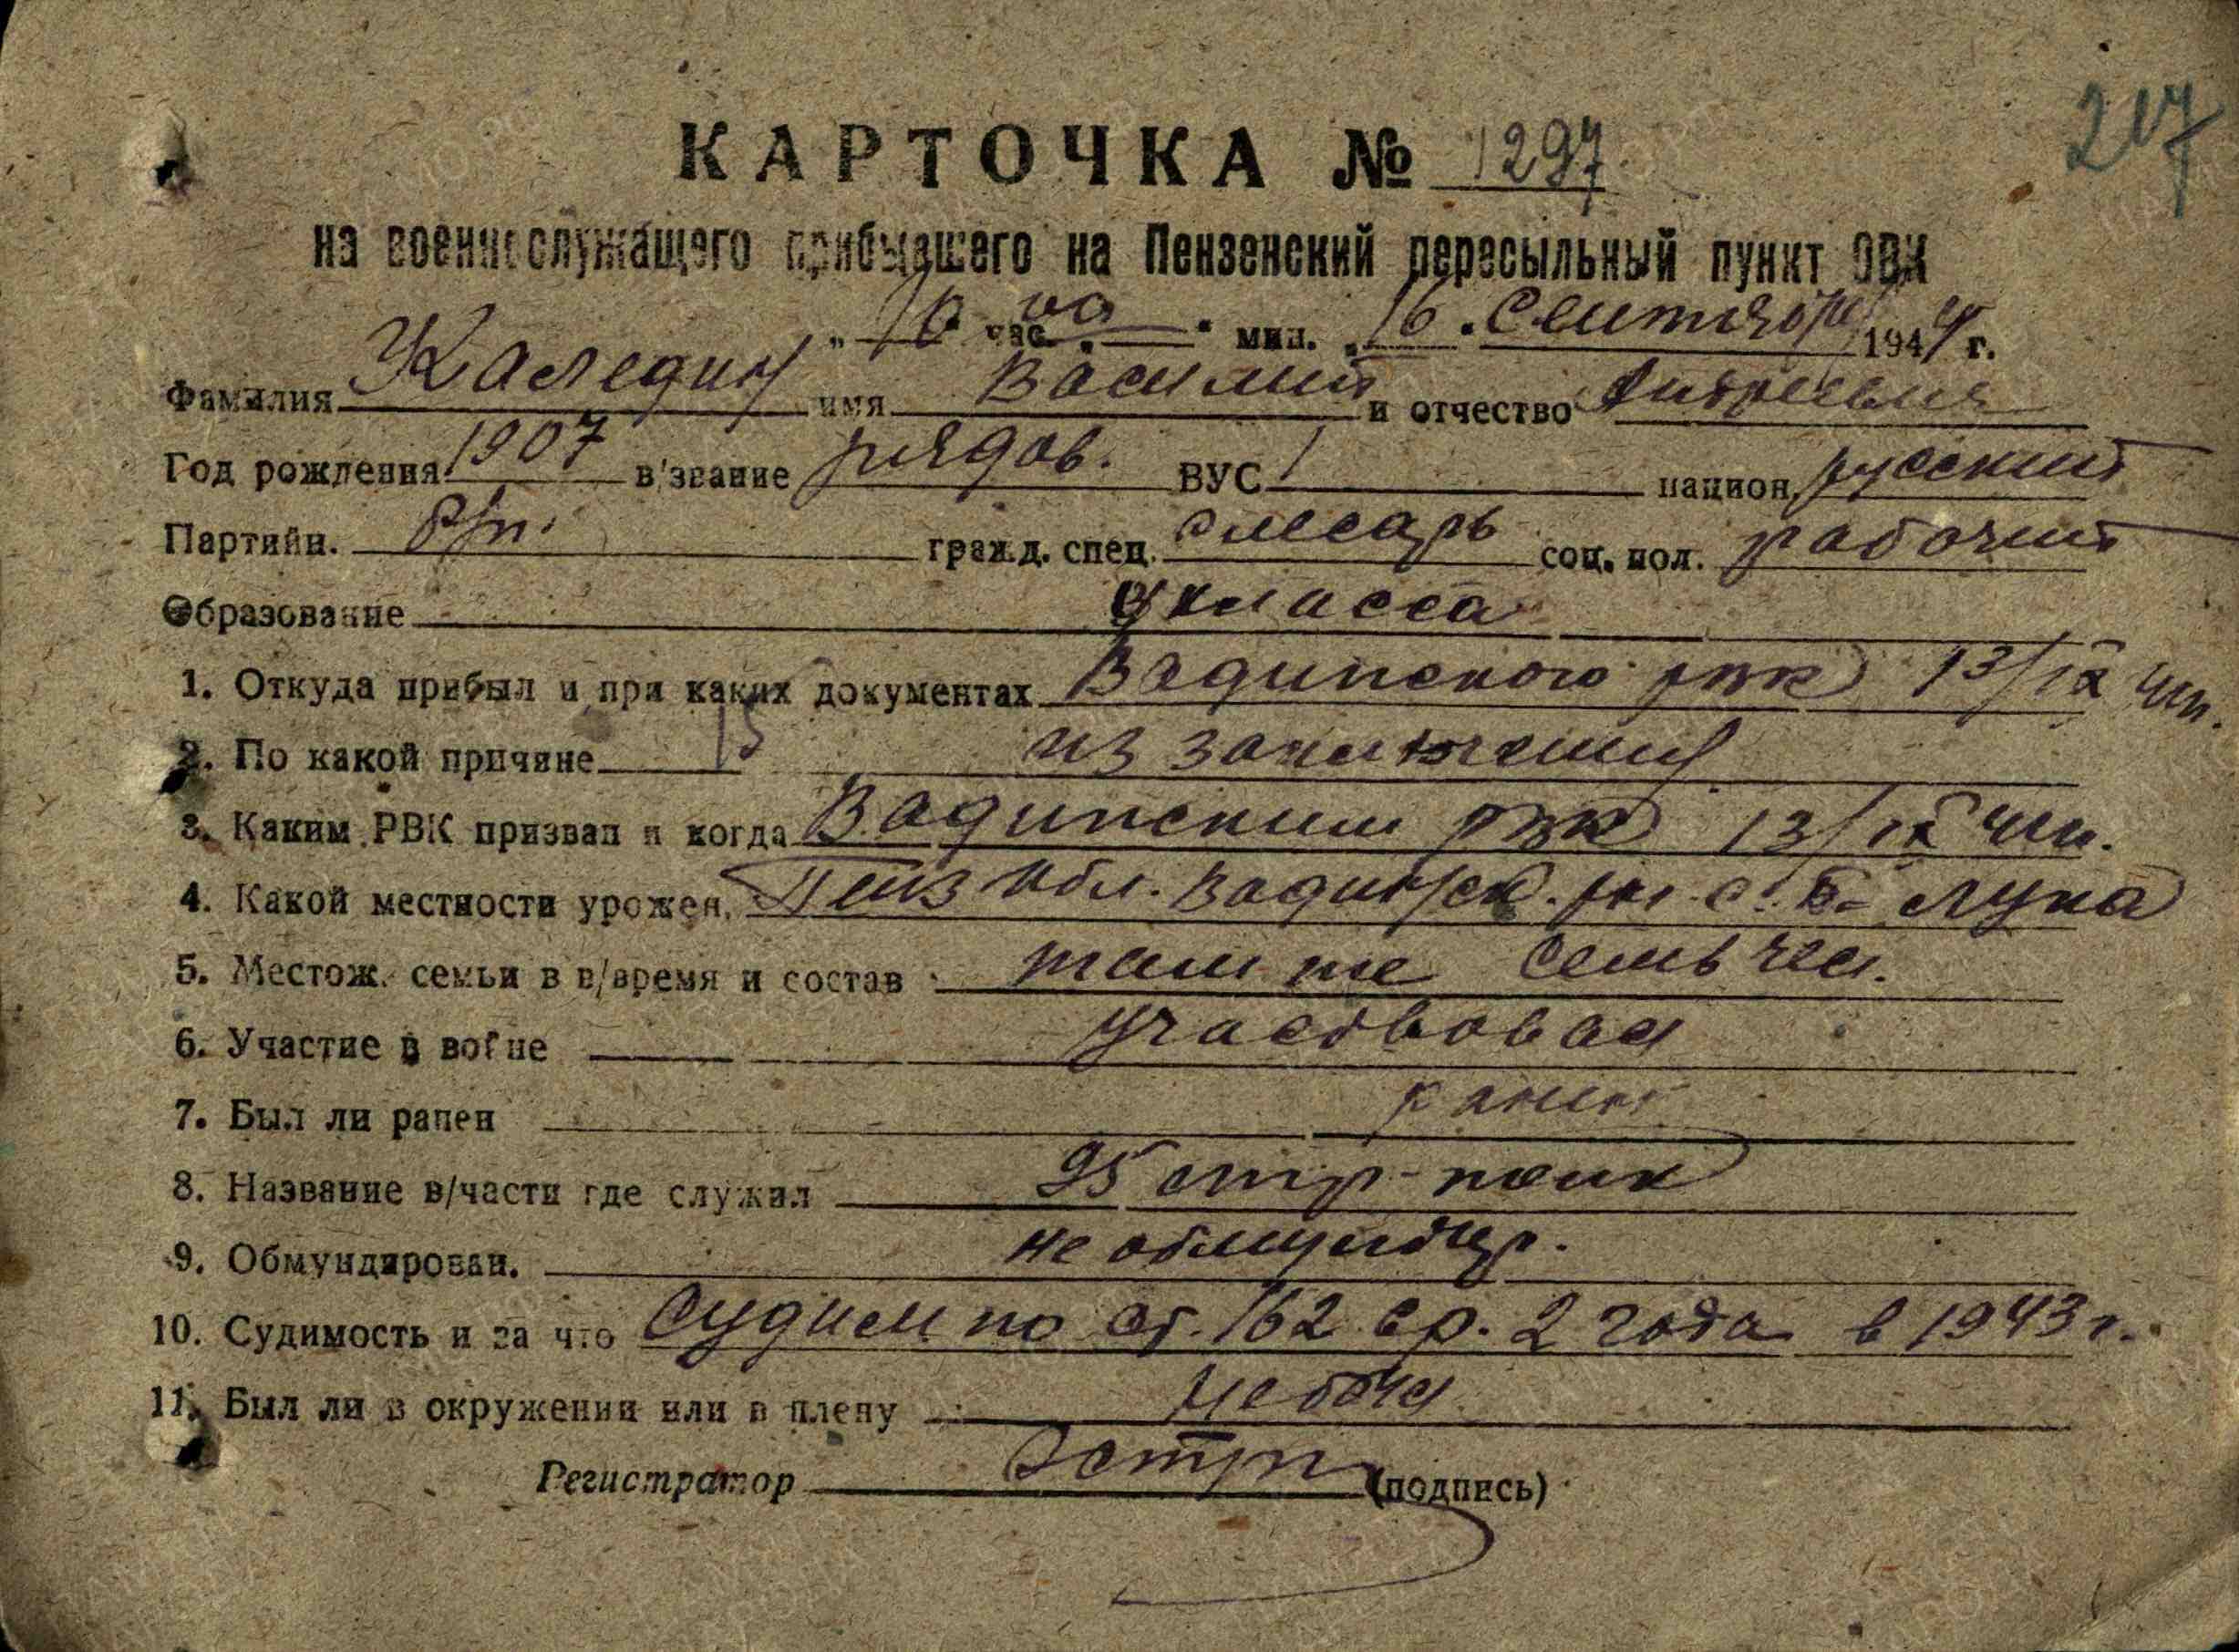 217
КАРТОЧКА № 1297
на военнослужащего прибывшего на Пензенский пересыльный пункт ОВК
„ 10 " час. „ 00 " мин. „ 16 . Сентября 1944 г.
Фамилия Каледин имя Василий и отчество Андреевич
Год рождения 1907 в/звание рядов. ВУС 1 национ. русский
Партийн. б/п. гражд. спец. слесарь соц. пол. рабочий
Образование 4 класса
1. Откуда прибыл и при каких документах Вадинского рвк 13/IX 44г.
2. По какой причине 15 из заключения
3. Каким РВК призван и когда Вадинским рвк 13/IX 44г.
4. Какой местности урожен. Пенз обл. Вадинск. рн. с. Б-Лука
5. Местож. семьи в в/время и состав там же семь чел.
6. Участие в войне участвовал
7. Был ли ранен ранен
8. Название в/части где служил 95 стр-полк
9. Обмундирован. не обмундир.
10. Судимость и за что Судим по ст. 162 ср. 2 года в 1943 г.
11. Был ли в окружении или в плену не был
Регистратор (подпись)